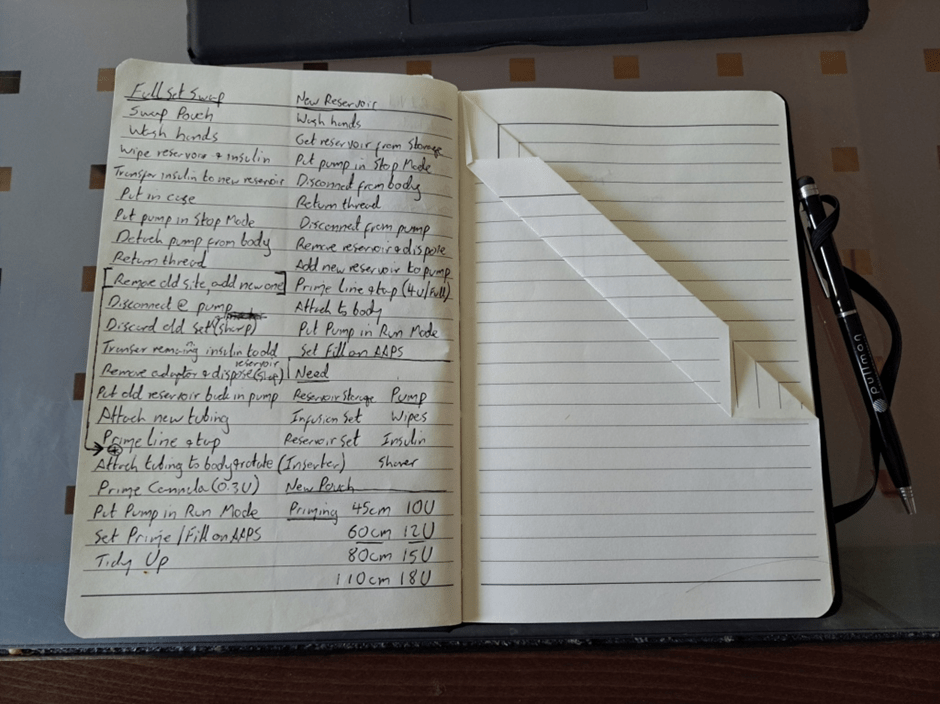 Full Set Swap
Swap Pouch
Wash hands
Wipe reservoir + insulin
Transfer insulin to new reservoir
Put in case
Put pump in Stop Mode
Detach pump from body
Return thread
[Remove old site, add new one]
Disconnect @ pump
Discard old set (sharp)
Transer remaing insulin to old
reservoir
Remove adaptor + dispose
Put old reservoir back in pump
Attach new tubing
Prime line + tap
Attach tubing to body + rotate (Inserter)
Prime Cannula (0.3U)
Put Pump in Run Mode
Set Prime/Fill on AAPS
Tidy Up
New Reservoir
Wash hands
Get reservoir from storage
Put pump in Stop Mode
Disconnect from body
Return thread
Disconnect from pump
Remove reservoir + dispose
Add new reservoir to pump
Prime line + tap (4U/Full)
Attach to body
Put Pump in Run Mode
Set Fill on AAPS
Need
Reservoir Storage Pump
Infusion Set Wipes
Reservoir Set Insulin
Shaver
New Pouch
Priming 45cm 10U
60cm 12U
80cm 15U
110cm 18U